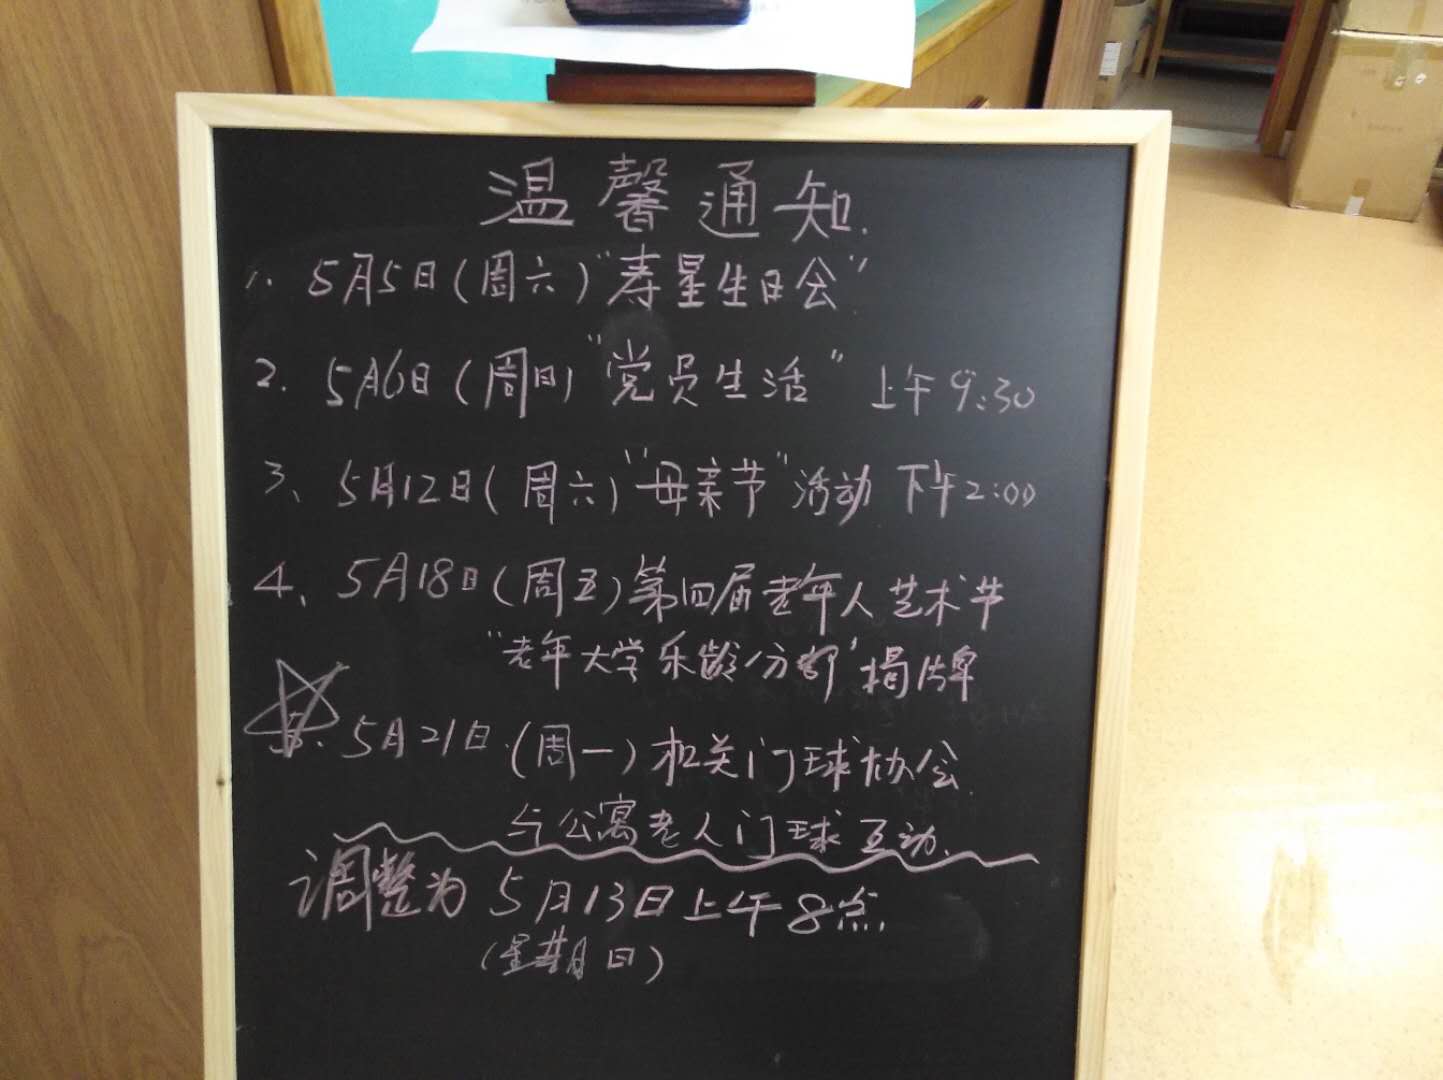 温馨通知.
1. 5月5日(周六)"寿星生日会"
2. 5月6日(周日)"党员生活" 上午9:30
3、5月12日(周六)"母亲节"活动 下午2:00
4、5月18日(周五)第四届老年人艺术节
"老年大学乐龄分部"揭牌
5. 5月21日.(周一)机关门球协会
与公寓老人门球互动.
调整为 5月13日上午8点
(星期日)